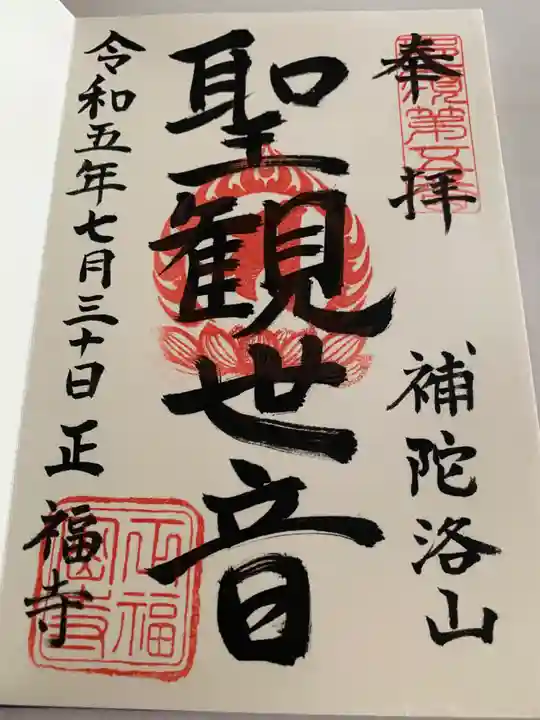 奉拝
補陀洛山
聖観世音
令和五年七月三十日
正福寺
正福